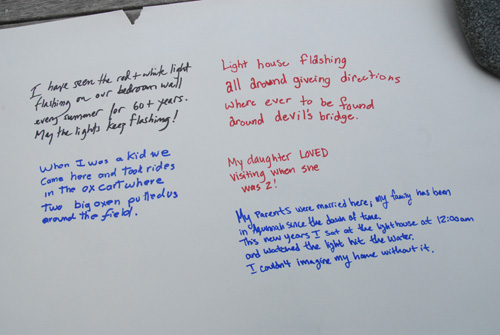 I have seen the red + white light
flashing on our bedroom wall
every summer for 60+ years.
May the lights keep flashing!
When I was a kid we
came here and took rides
in the ox cart where
two big oxen pulled us
around the field.
Light house flashing
all around giveing directions
where ever to be found
around devil's bridge.
My daughter LOVED
visiting when she
was 2!
My parents were married here, my family has been
in Aquinnah since the dawn of time.
This new years I sat at the lighthouse at 12:00am
and watched the light hit the water.
I couldn't imagine my home without it.